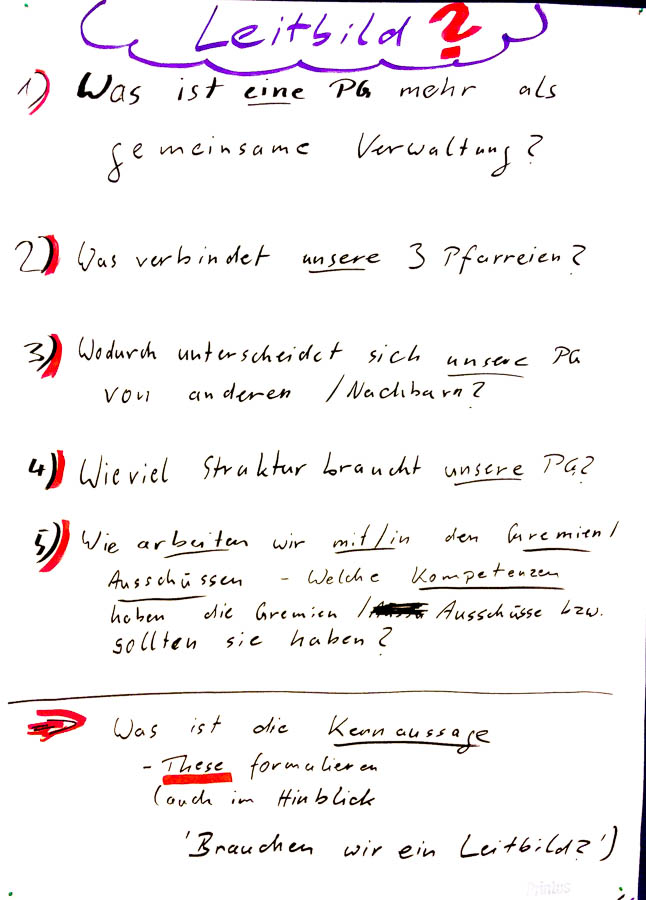 Leitbild ?
1) Was ist eine PG mehr als
gemeinsame Verwaltung?
2) Was verbindet unsere 3 Pfarreien?
3) Wodurch unterscheidet sich unsere PG
von anderen / Nachbarn?
4) Wieviel Struktur braucht unsere PG?
5) Wie arbeiten wir mit/in den Gremien/
Ausschüssen - Welche Kompetenzen
haben die Gremien / Ausschüsse bzw.
sollten sie haben?
Was ist die Kernaussage
- These formalieren
(auch im Hinblick
'Brauchen wir ein Leitbild?')
Printus